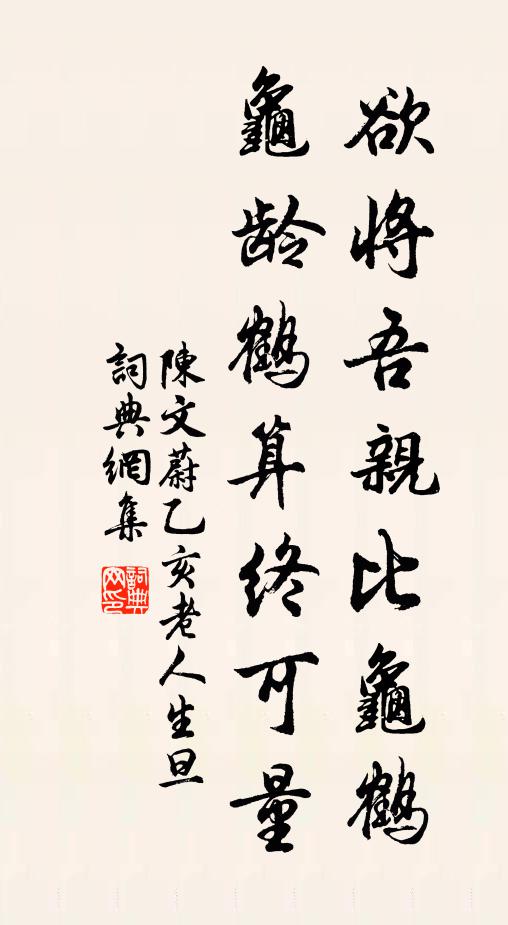 欲將吾親比龜鶴
龜齡鶴算終可量
陳文蔚乙亥老人生旦
詞典網集
詞典網印